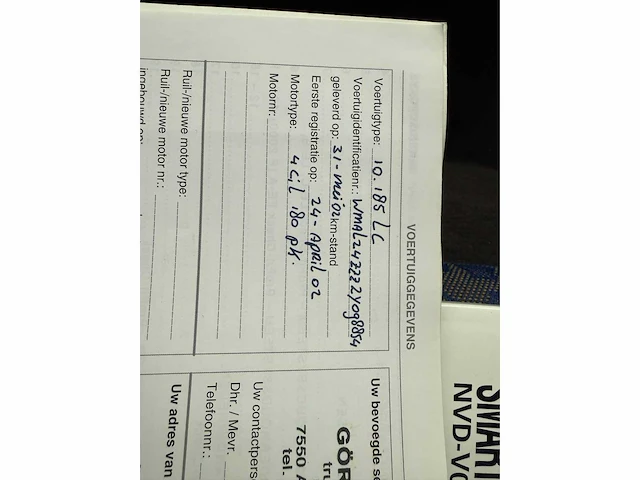 VOERTUIGGEGEVENS
Voertuigtype: 10.185 LC
Voertuigidentificatienr.: WMAL24ZZZ2Y098854
geleverd op: 31-mei 02 km-stand
Eerste registratie op: 24-April 02
Motortype: 4 Cil 180 pk.
Motornr:
Ruil-/nieuwe motor type:
Ruil-/nieuwe motor nr.:
ingebouwd op:
Uw bevoegde se
GÖR
tru
7550 A
tel.
Uw contactpers
Dhr. / Mevr.
Telefoonnr.:
Uw adres van
SMART
NVD-VO